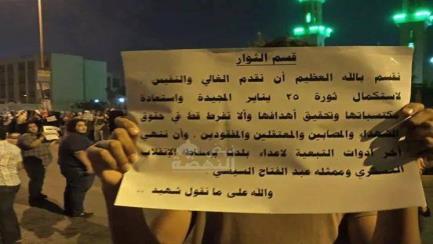 قسم الثوار
نقسم بالله العظيم أن نقدم الغالي والنفيس
لاستكمال ثورة ٢٥ يناير المجيدة واستعادة
مكتسباتها وتحقيق أهدافها وألا نفرط قط في حقوق
الشهداء والمصابين والمعتقلين والمفقودين . وأن ننهي
أخر أدوات التبعية لاعداء بلدنا الانقلاب
العسكري وممثله عبد الفتاح السيسي
والله على ما نقول شهيد ..